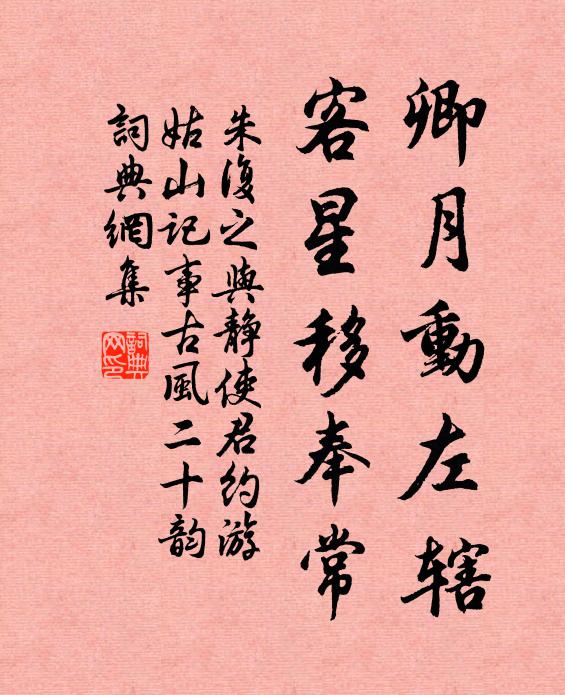 卿月動左辖
客星移奉常
朱復之與静使君约游
姑山记事古風二十韵
詞典網集
詞典
网印